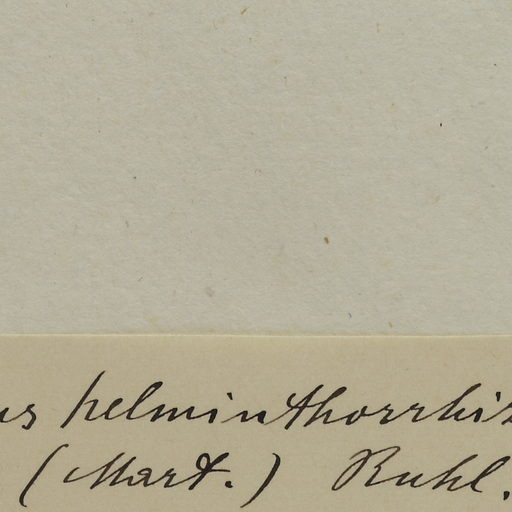 us helminthorrhiz
(Mart.) Ruhl.